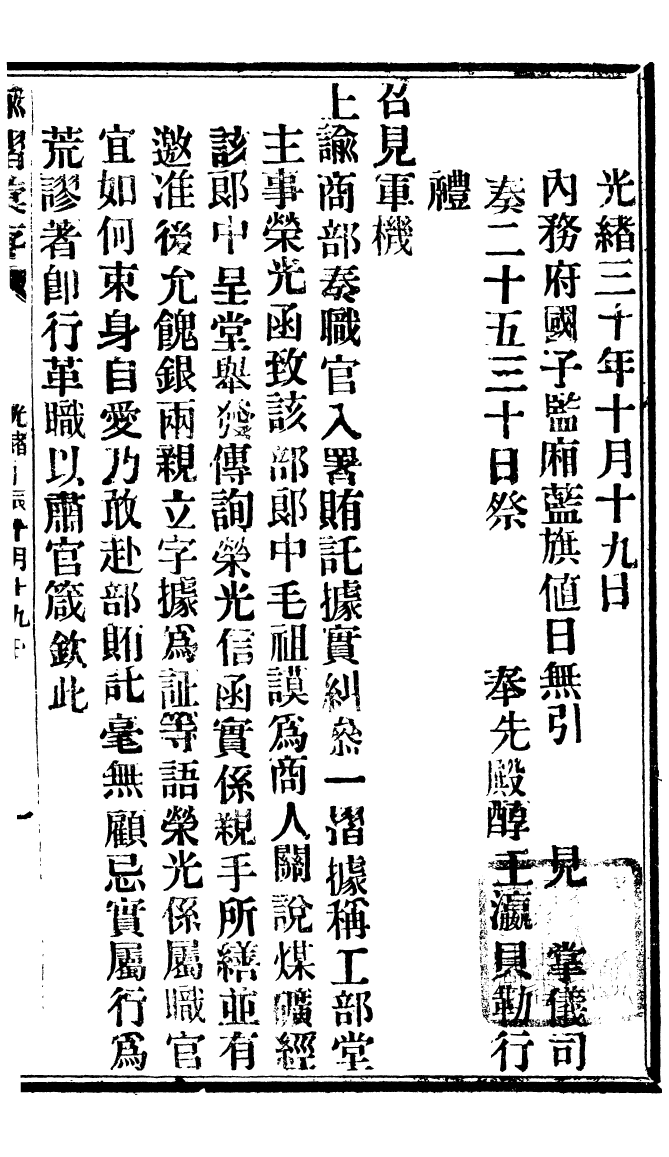 光緒三十年十月十九日
內務府國子監廂藍旗値日無引　見　掌儀司
奏二十五三十日祭　奉先殿醇王瀛貝勒行
禮
召見軍機
上諭商部奏職官入署賄託據實糾叅一摺據稱工部堂
主事榮光函致該部郎中毛祖謨爲商人關說煤礦經
該郎中呈堂舉發傳詢榮光信函實係親手所繕並有
邀准後允餽銀兩親立字據爲証等語榮光係屬職官
宜如何束身自愛乃敢赴部賄託毫無顧忌實屬行爲
荒謬著卽行革職以肅官箴欽此
光緒甲辰十月十九日
一